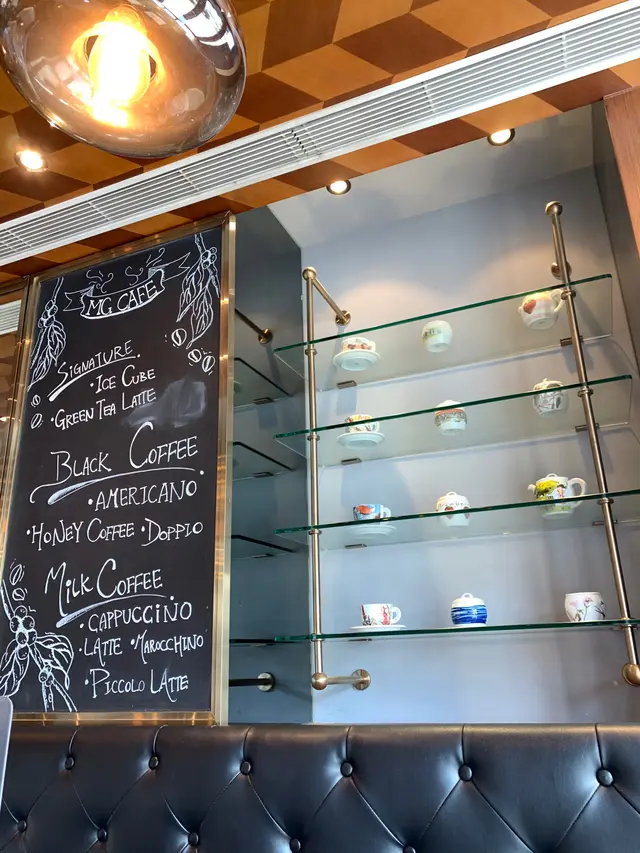 MG CAFE
SIGNATURE
· ICE CUBE
· GREEN TEA LATTE
BLACK COFFEE
· AMERICANO
· HONEY COFFEE · DOPPIO
MILK COFFEE
· CAPPUCCINO
· LATTE · MAROCCHINO
· PICCOLO LATTE